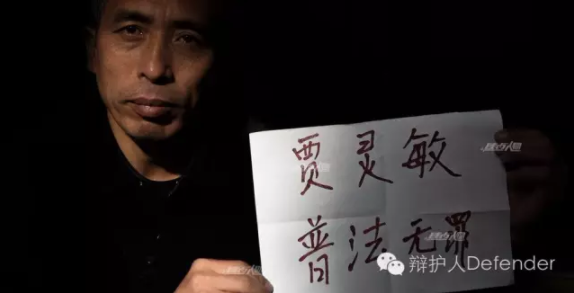 贾灵敏
普法无罪
辩护人Defender